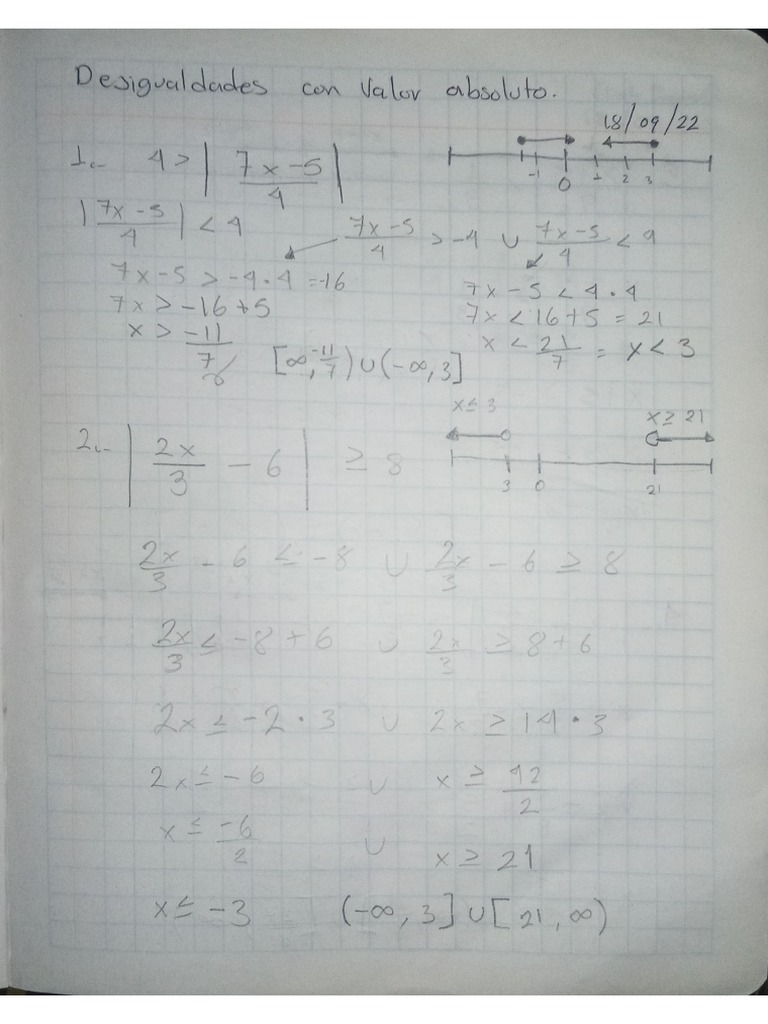 Desigualdades con Valor absoluto.
18/09/22
1.- 4 > | (7x-5)/4 |
-1 0 1 2 3
| (7x-5)/4 | < 4
(7x-5)/4 > -4 ∪ (7x-5)/4 < 9
7x-5 > -4·4 = -16
7x > -16+5
x > -11/7
7x-5 < 4·4
7x < 16+5 = 21
x < 21/7 = x < 3
[∞, -11/7) ∪ (-∞, 3]
2.- | 2x/3 - 6 | ≥ 8
x ≤ 3 x ≥ 21
3 0 21
2x/3 - 6 ≤ -8 ∪ 2x/3 - 6 ≥ 8
2x/3 ≤ -8+6 ∪ 2x/3 ≥ 8+6
2x ≤ -2·3 ∪ 2x ≥ 14·3
2x ≤ -6 ∪ x ≥ 42/2
x ≤ -6/2 ∪ x ≥ 21
x ≤ -3 (-∞, 3] ∪ [21, ∞)